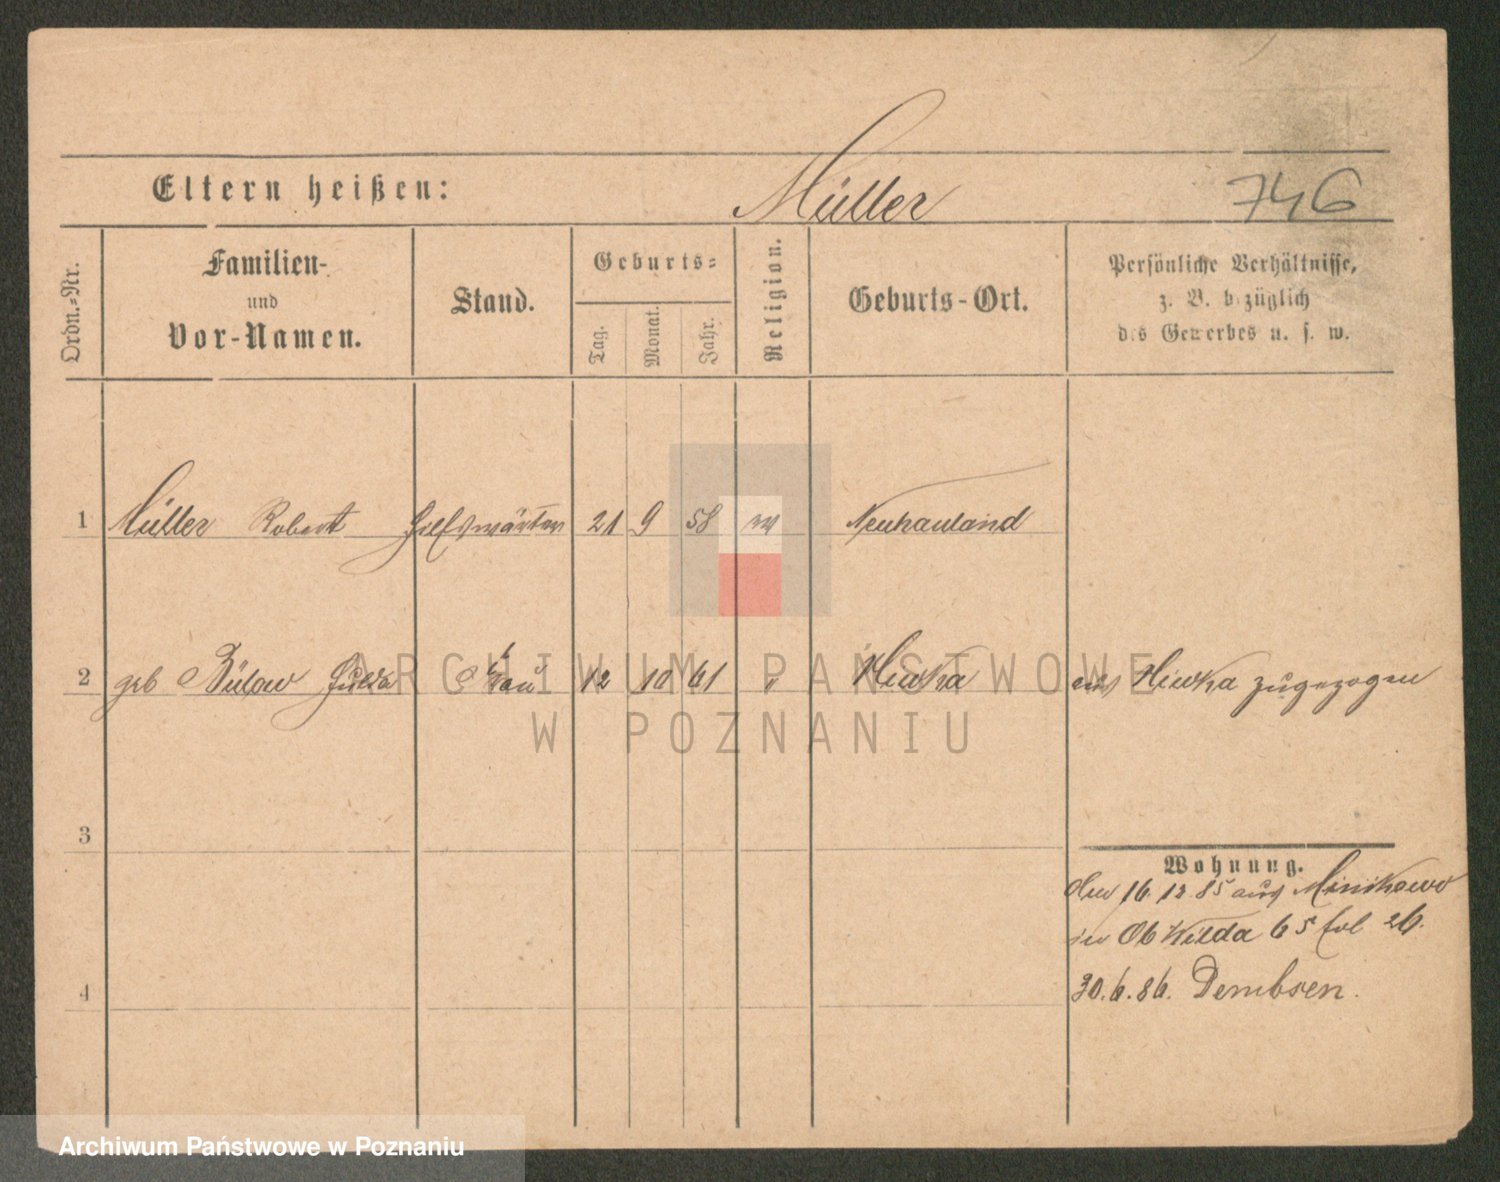 Eltern heißen: Müller 746
Ordn.=Nr.
Familien-
und
Vor-Namen.
Stand.
Geburts=
Tag.
Monat.
Jahr.
Religion.
Geburts-Ort.
Persönliche Verhältnisse,
z. B. bezüglich
des Gewerbes u. s. w.
1 Müller Robert Hilfswärter 21 9 58 Neuhauland
2 geb Bülow Hulda Frau 12 10 61 " Hiwka aus Hiwka zugezogen
3
Wohnung.
16. 12 85 aus Minikowo
in Ob Wilda 65 fol 26.
4
30. 6. 86. Dembsen.
ARCHIWUM PAŃSTWOWE
W POZNANIU
Archiwum Państwowe w Poznaniu